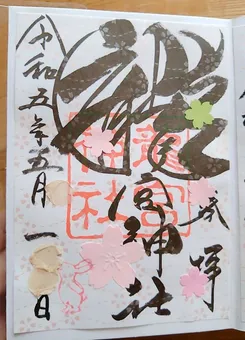 奉拝
龍
龍宮神社
龍宮
神社
令和五年五月一日